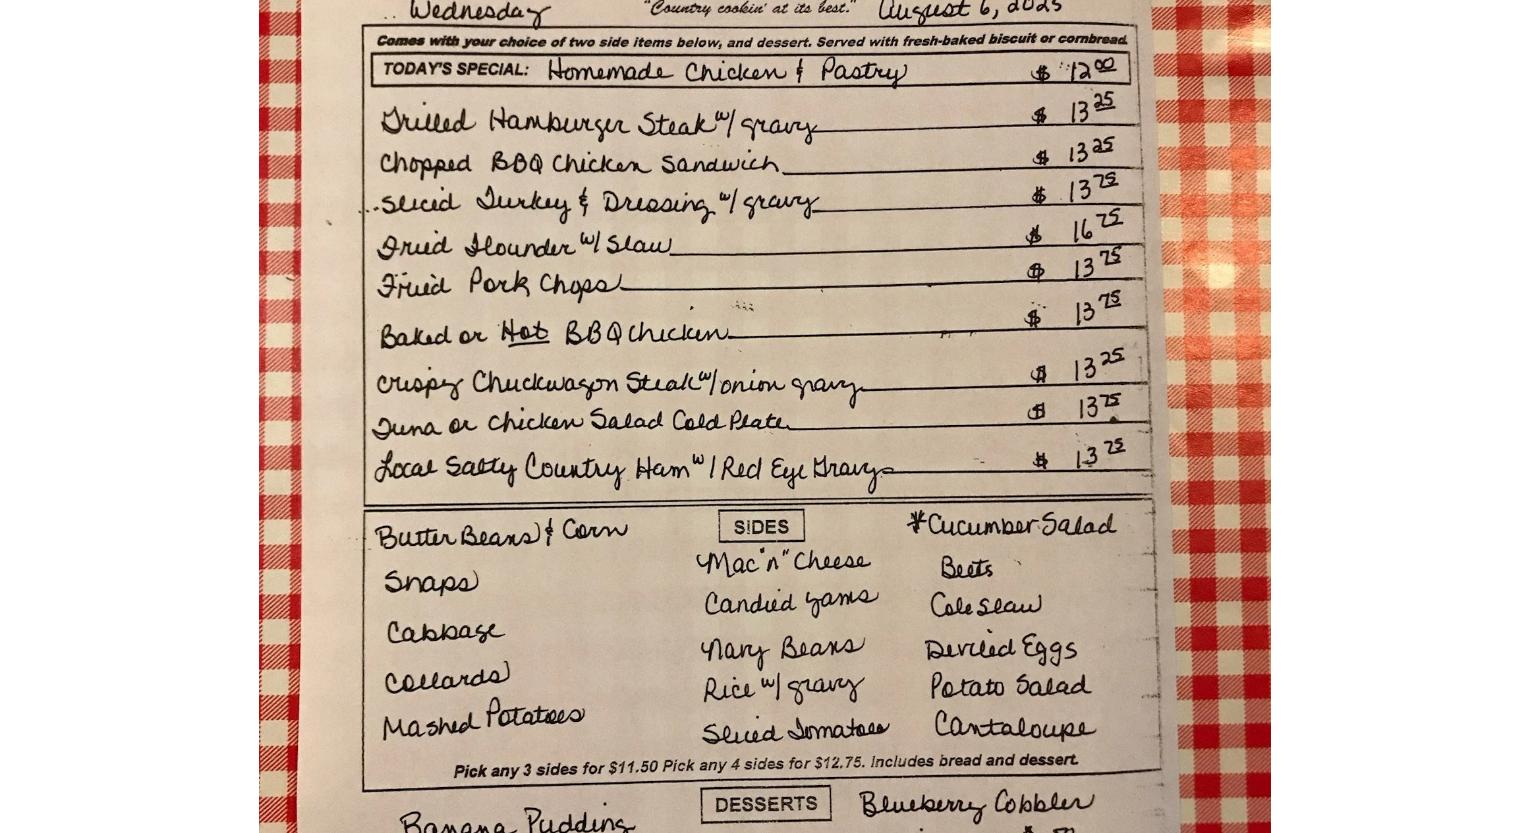 Wednesday "Country cookin' at its best." August 6, 2025
Comes with your choice of two side items below, and dessert. Served with fresh-baked biscuit or cornbread.
TODAY'S SPECIAL: Homemade Chicken & Pastry $ 12.00
Grilled Hamburger Steak w/ gravy $ 13.25
Chopped BBQ Chicken Sandwich $ 13.25
Sliced Turkey & Dressing w/ gravy $ 13.75
Fried Flounder w/ Slaw $ 16.75
Fried Pork Chops $ 13.75
Baked or Hot BBQ Chicken $ 13.75
Crispy Chuckwagon Steak w/ onion gravy $ 13.25
Tuna or Chicken Salad Cold Plate $ 13.75
Local Salty Country Ham w/ Red Eye Gravy $ 13.75
Butter Beans & Corn SIDES *Cucumber Salad
Snaps Mac "n" Cheese Beets
Cabbage Candied Yams Cole Slaw
Collards Navy Beans Deviled Eggs
Mashed Potatoes Rice w/ gravy Potato Salad
Sliced Tomatoes Cantaloupe
Pick any 3 sides for $11.50 Pick any 4 sides for $12.75. Includes bread and dessert.
Banana Pudding DESSERTS Blueberry Cobbler